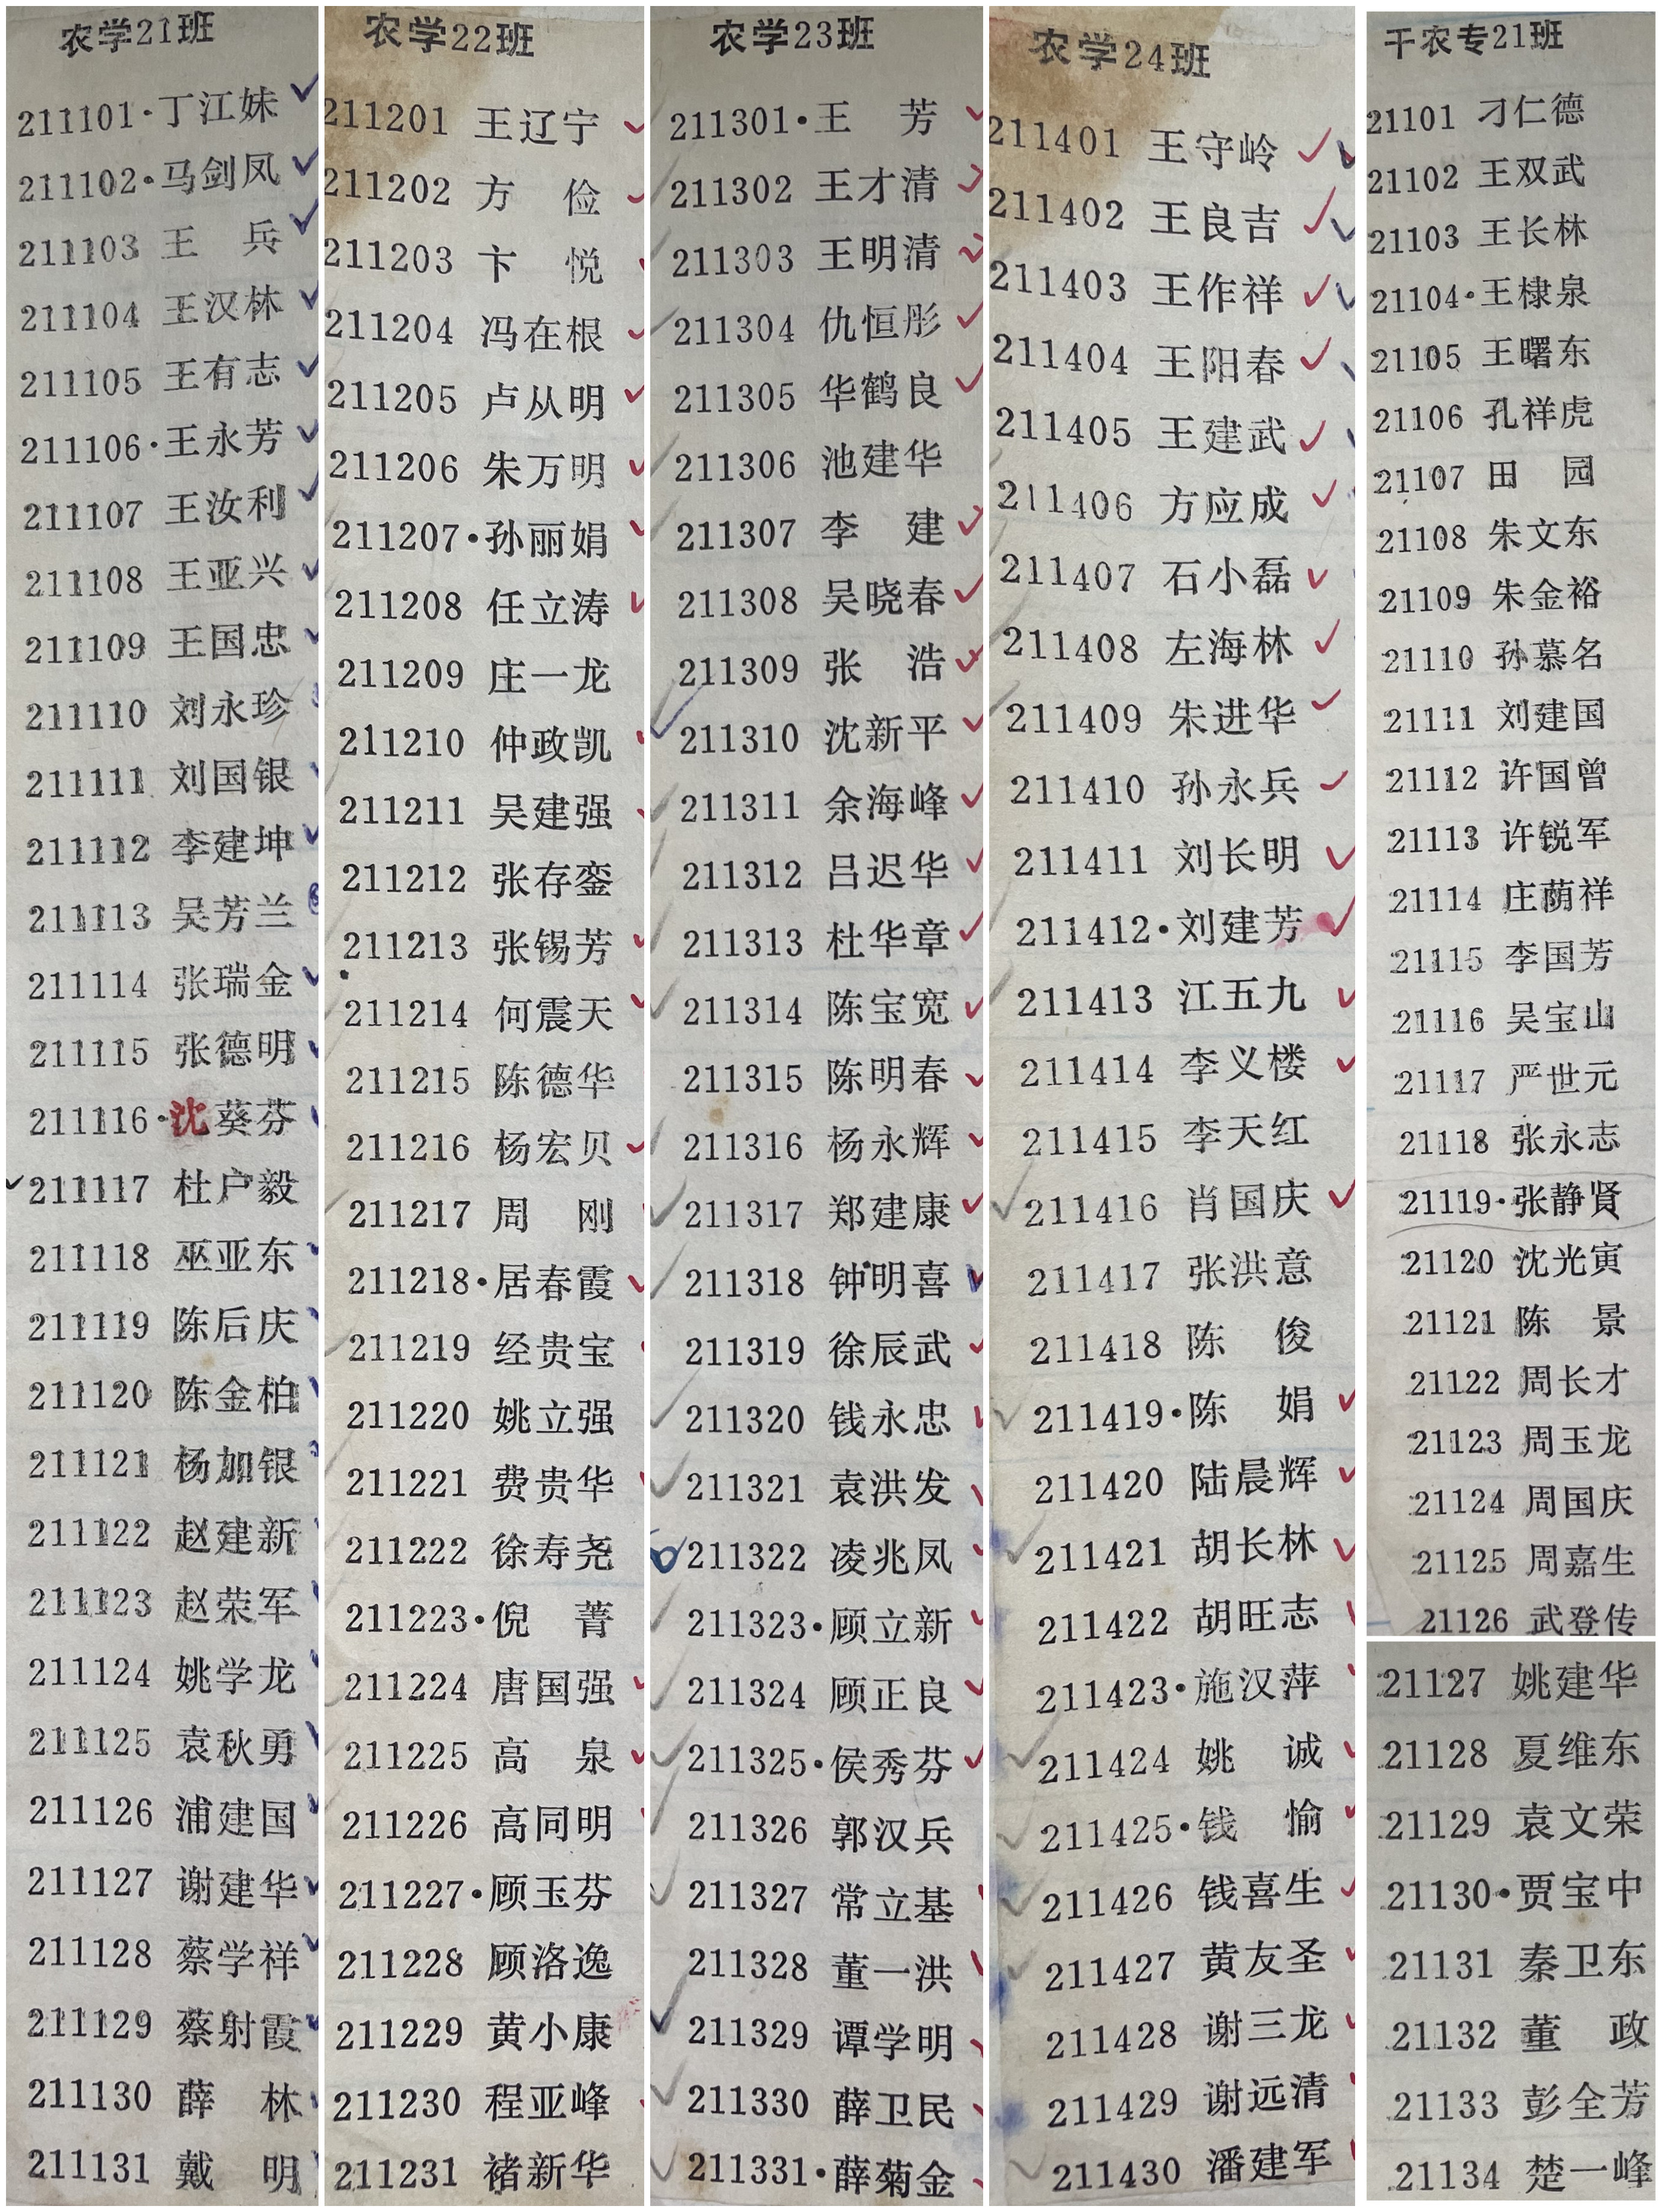 农学21班
211101·丁江妹
211102·马剑凤
211103 王 兵
211104 王汉林
211105 王有志
211106·王永芳
211107 王汝利
211108 王亚兴
211109 王国忠
211110 刘永珍
211111 刘国银
211112 李建坤
211113 吴芳兰
211114 张瑞金
211115 张德明
211116·沈葵芬
211117 杜户毅
211118 巫亚东
211119 陈后庆
211120 陈金柏
211121 杨加银
211122 赵建新
211123 赵荣军
211124 姚学龙
211125 袁秋勇
211126 浦建国
211127 谢建华
211128 蔡学祥
211129 蔡射霞
211130 薛 林
211131 戴 明
农学22班
211201 王辽宁
211202 方 俭
211203 卞 悦
211204 冯在根
211205 卢从明
211206 朱万明
211207·孙丽娟
211208 任立涛
211209 庄一龙
211210 仲政凯
211211 吴建强
211212 张存銮
211213 张锡芳
211214 何震天
211215 陈德华
211216 杨宏贝
211217 周 刚
211218·居春霞
211219 经贵宝
211220 姚立强
211221 费贵华
211222 徐寿尧
211223·倪 菁
211224 唐国强
211225 高 泉
211226 高同明
211227·顾玉芬
211228 顾洛逸
211229 黄小康
211230 程亚峰
211231 褚新华
农学23班
211301·王 芳
211302 王才清
211303 王明清
211304 仇恒彤
211305 华鹤良
211306 池建华
211307 李 建
211308 吴晓春
211309 张 浩
211310 沈新平
211311 余海峰
211312 吕迟华
211313 杜华章
211314 陈宝宽
211315 陈明春
211316 杨永辉
211317 郑建康
211318 钟明喜
211319 徐辰武
211320 钱永忠
211321 袁洪发
211322 凌兆凤
211323·顾立新
211324 顾正良
211325·侯秀芬
211326 郭汉兵
211327 常立基
211328 董一洪
211329 谭学明
211330 薛卫民
211331·薛菊金
农学24班
211401 王守岭
211402 王良吉
211403 王作祥
211404 王阳春
211405 王建武
211406 方应成
211407 石小磊
211408 左海林
211409 朱进华
211410 孙永兵
211411 刘长明
211412·刘建芳
211413 江五九
211414 李义楼
211415 李天红
211416 肖国庆
211417 张洪意
211418 陈 俊
211419·陈 娟
211420 陆晨辉
211421 胡长林
211422 胡旺志
211423·施汉萍
211424 姚 诚
211425·钱 愉
211426 钱喜生
211427 黄友圣
211428 谢三龙
211429 谢远清
211430 潘建军
干农专21班
21101 刁仁德
21102 王双武
21103 王长林
21104·王棣泉
21105 王曙东
21106 孔祥虎
21107 田 园
21108 朱文东
21109 朱金裕
21110 孙慕名
21111 刘建国
21112 许国曾
21113 许锐军
21114 庄荫祥
21115 李国芳
21116 吴宝山
21117 严世元
21118 张永志
21119·张静贤
21120 沈光寅
21121 陈 景
21122 周长才
21123 周玉龙
21124 周国庆
21125 周嘉生
21126 武登传
21127 姚建华
21128 夏维东
21129 袁文荣
21130·贾宝中
21131 秦卫东
21132 董 政
21133 彭全芳
21134 楚一峰